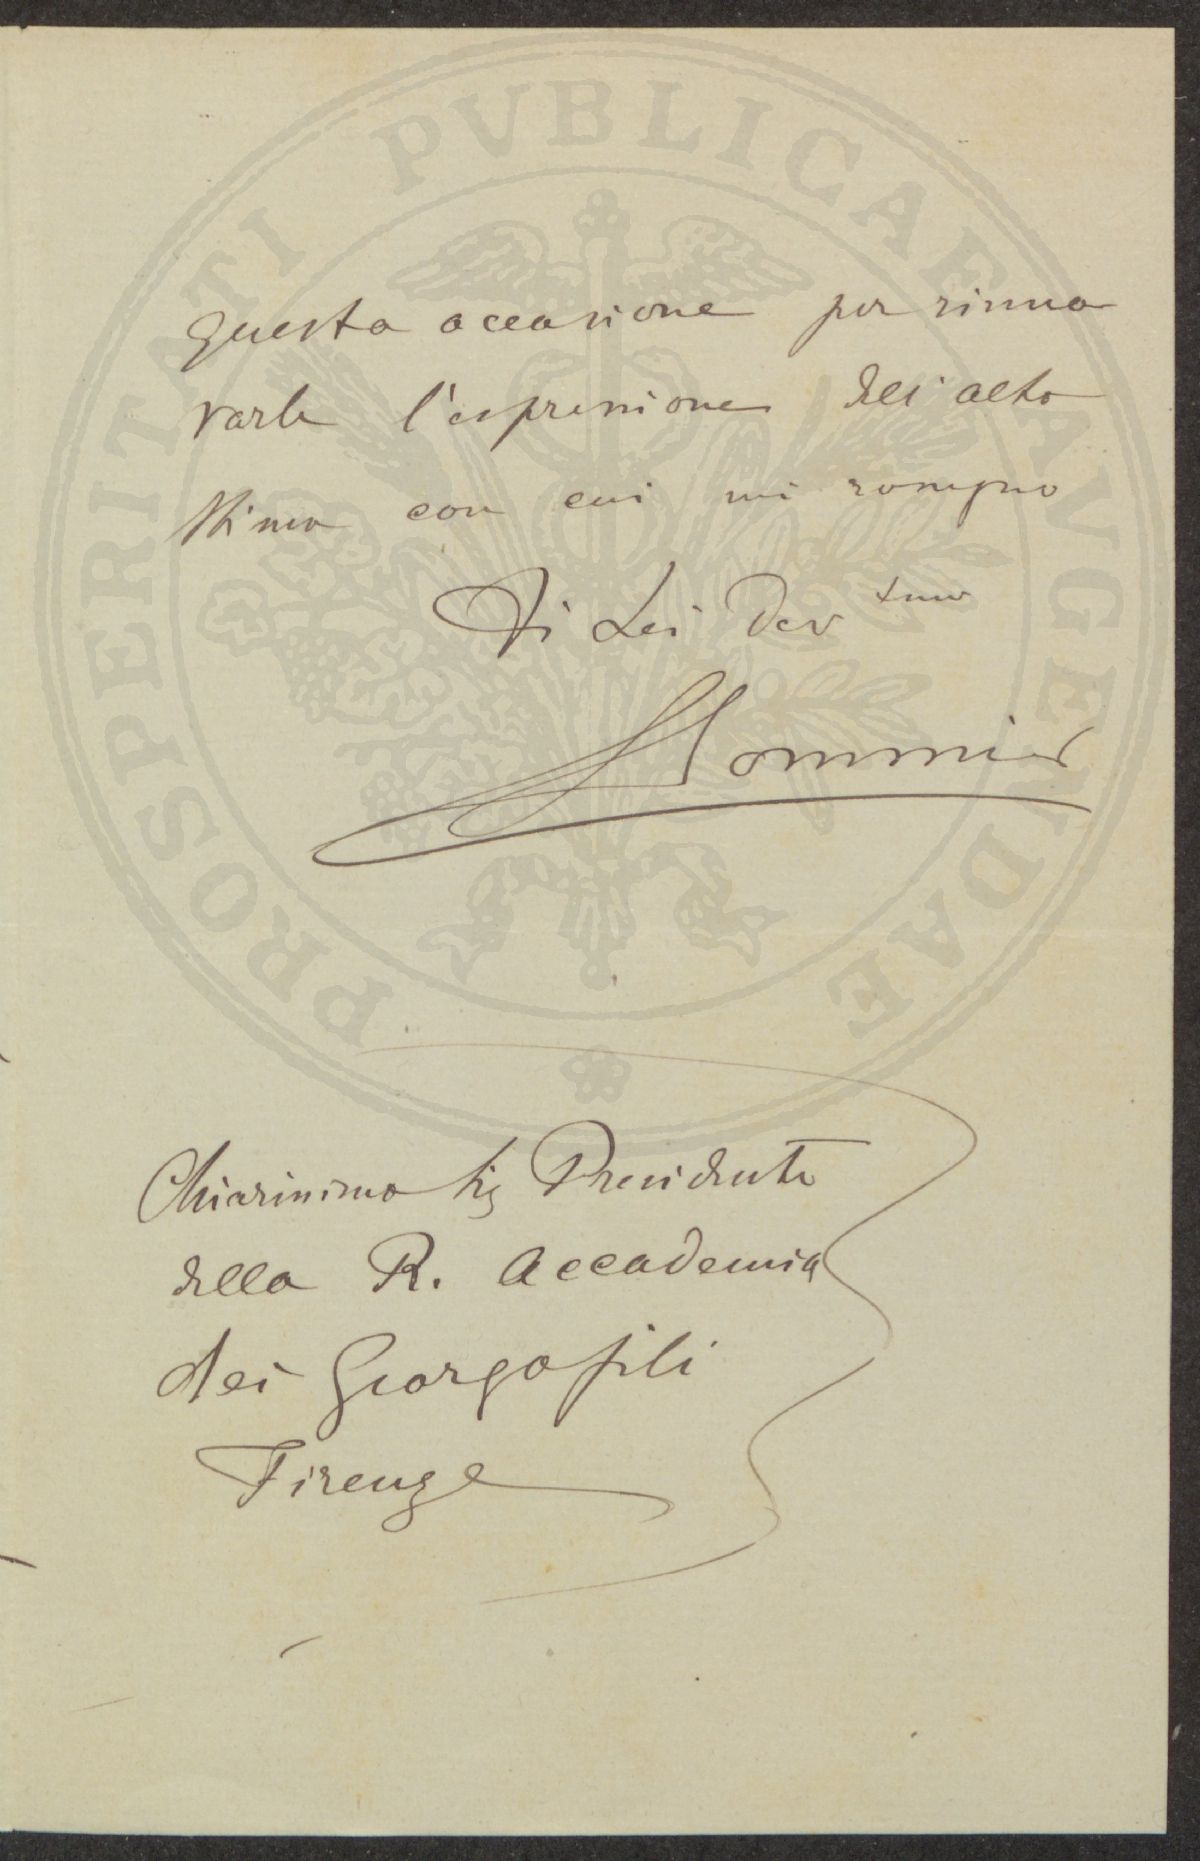 PROSPERITATI PVBLICAE AVGENDAE
questa occasione per rinno
varle l'espressione dell'alta
stima con cui mi rassegno
Di Lei Dev tmo
SSommier
Chiarissimo Sig Presidente
della R. Accademia
dei Georgofili
Firenze